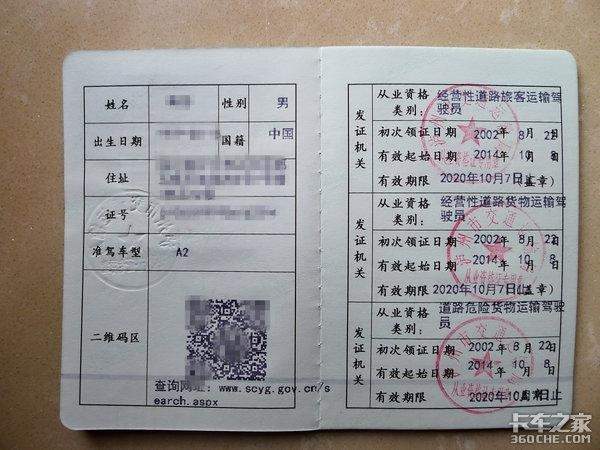 姓名
性别
男
出生日期
国籍
中国
住址
证号
准驾车型
A2
二维码区
查询网址: www.scyg.gov.cn/s
earch.aspx
发证机关
从业资格类别:
经营性道路旅客运输驾
驶员
初次领证日期 2002年 8月 22日
有效起始日期 2014年 10月 8日
有效期限 2020年10月7日止(盖章)
发证机关
从业资格类别:
经营性道路货物运输驾
驶员
初次领证日期 2002年 8月 22日
有效起始日期 2014年 10月 8日
有效期限 2020年10月7日止(盖章)
发证机关
从业资格类别:
道路危险货物运输驾驶
员
初次领证日期 2002年 8月 22日
有效起始日期 2014年 10月 8日
有效期限 2020年10月
日止
卡车之家
360CHE.COM